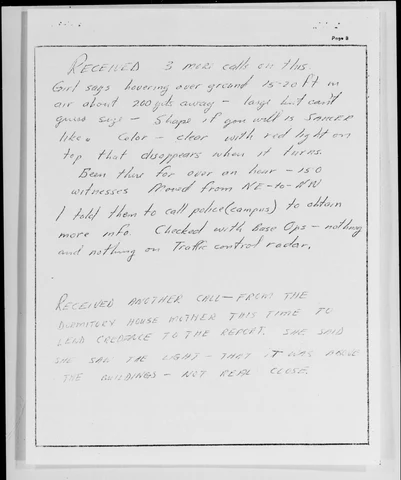 Page 2
RECEIVED 3 more calls on this.
Girl says hovering over ground 15-20 ft in
air about 200 yds away - large but can't
guess size - Shape if you will is SAUCER
like. Color - clear with red light on
top that disappears when it turns.
Been there for over an hour - 150
witnesses Moved from NE-to-NW
I told them to call police (campus) to obtain
more info. Checked with Base Ops - nothing
and nothing on Traffic control radar.
RECEIVED ANOTHER CALL - FROM THE
DORMITORY HOUSE MOTHER THIS TIME TO
LEND CREDANCE TO THE REPORT. SHE SAID
SHE SAW THE LIGHT - THAT IT WAS ABOVE
THE BUILDINGS - NOT REAL CLOSE.